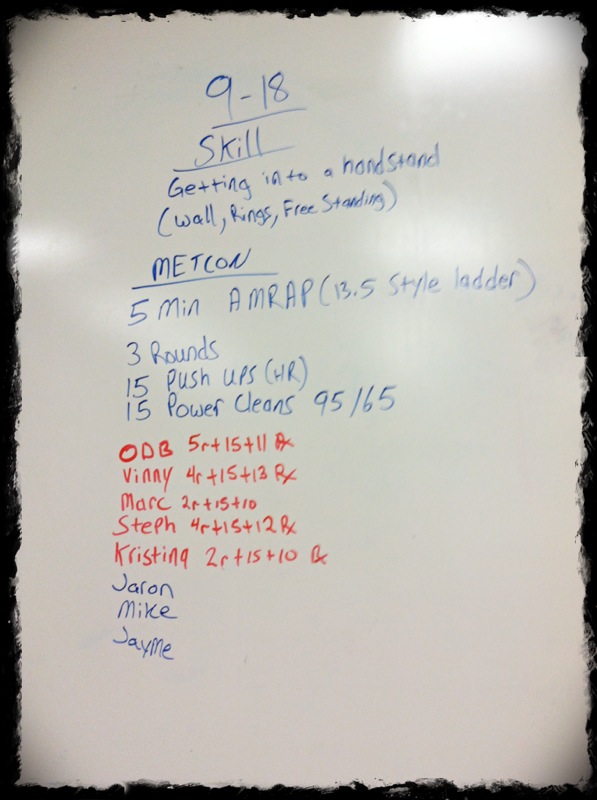 9-18
Skill
Getting into a handstand
(Wall, Rings, Free Standing)
METCON
5 Min AMRAP (13.5 Style ladder)
3 Rounds
15 Push ups (HR)
15 Power Cleans 95/65
ODB 5r+15+11 Rx
Vinny 4r+15+13 Rx
Marc 2r+15+10
Steph 4r+15+12 Rx
Kristina 2r+15+10 Rx
Jaron
Mike
Jayme